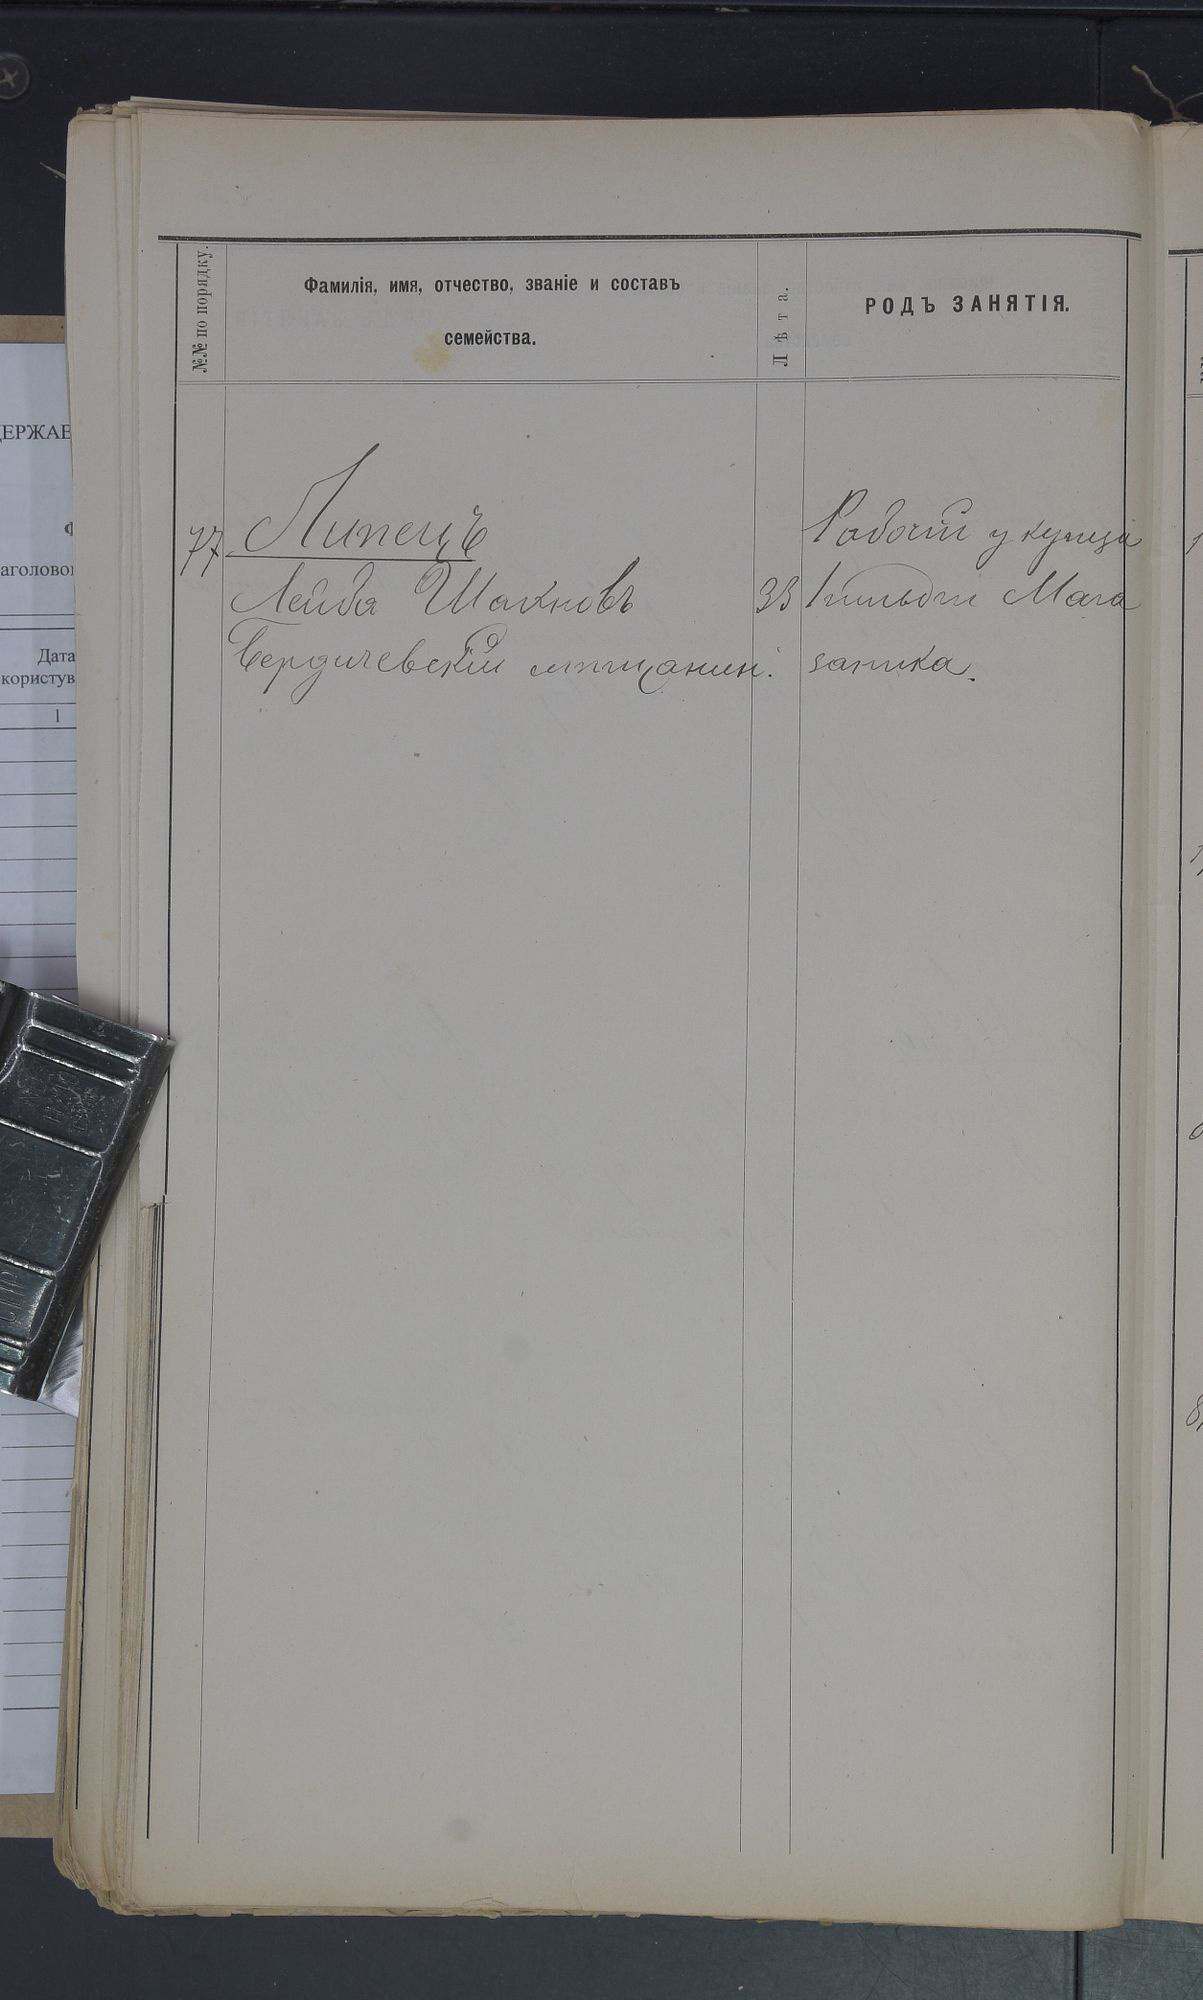 №№ по порядку.
Фамилія, имя, отчество, званіе и составъ
семейства.
Лѣта.
РОДЪ ЗАНЯТІЯ.
77
Липецъ
Рабочій у купца
Лейба Шахновъ
33
1 гильдіи Мага
Бердичевскій мѣщанинъ.
заника.
ДЕРЖАВ
аголово
Дата
користув
1